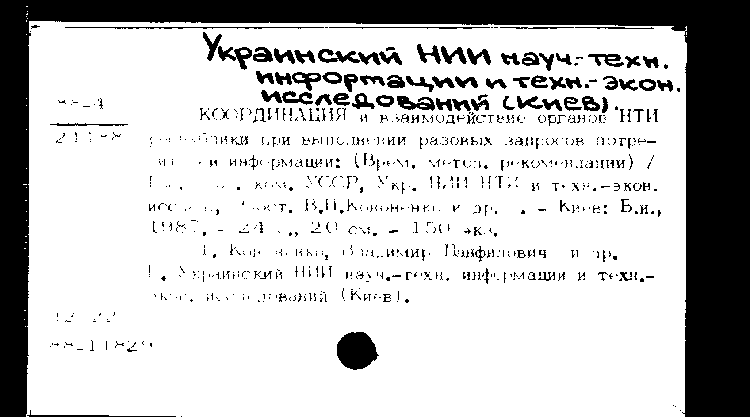 Украинский НИИ науч.-техн.
информации и техн.-экон.
исследований (Киев).
88-4
КООРДИНАЦИЯ и взаимодействие органов НТИ
21188
республики при выполнении разовых запросов потре-
информации: (Врем. метод. рекомендации) /
ком. УССР, Укр. НИИ НТИ и техн.-экон.
исслед., В.П.Кононенко и др. . - Киев: Б.и.,
1987. - 24 с., 20 см. - 150 экз.
1. Кононенко, Владимир Панфилович и др.
1. Украинский НИИ науч.-техн. информации и техн.-
экон. исследований (Киев).
88-11829